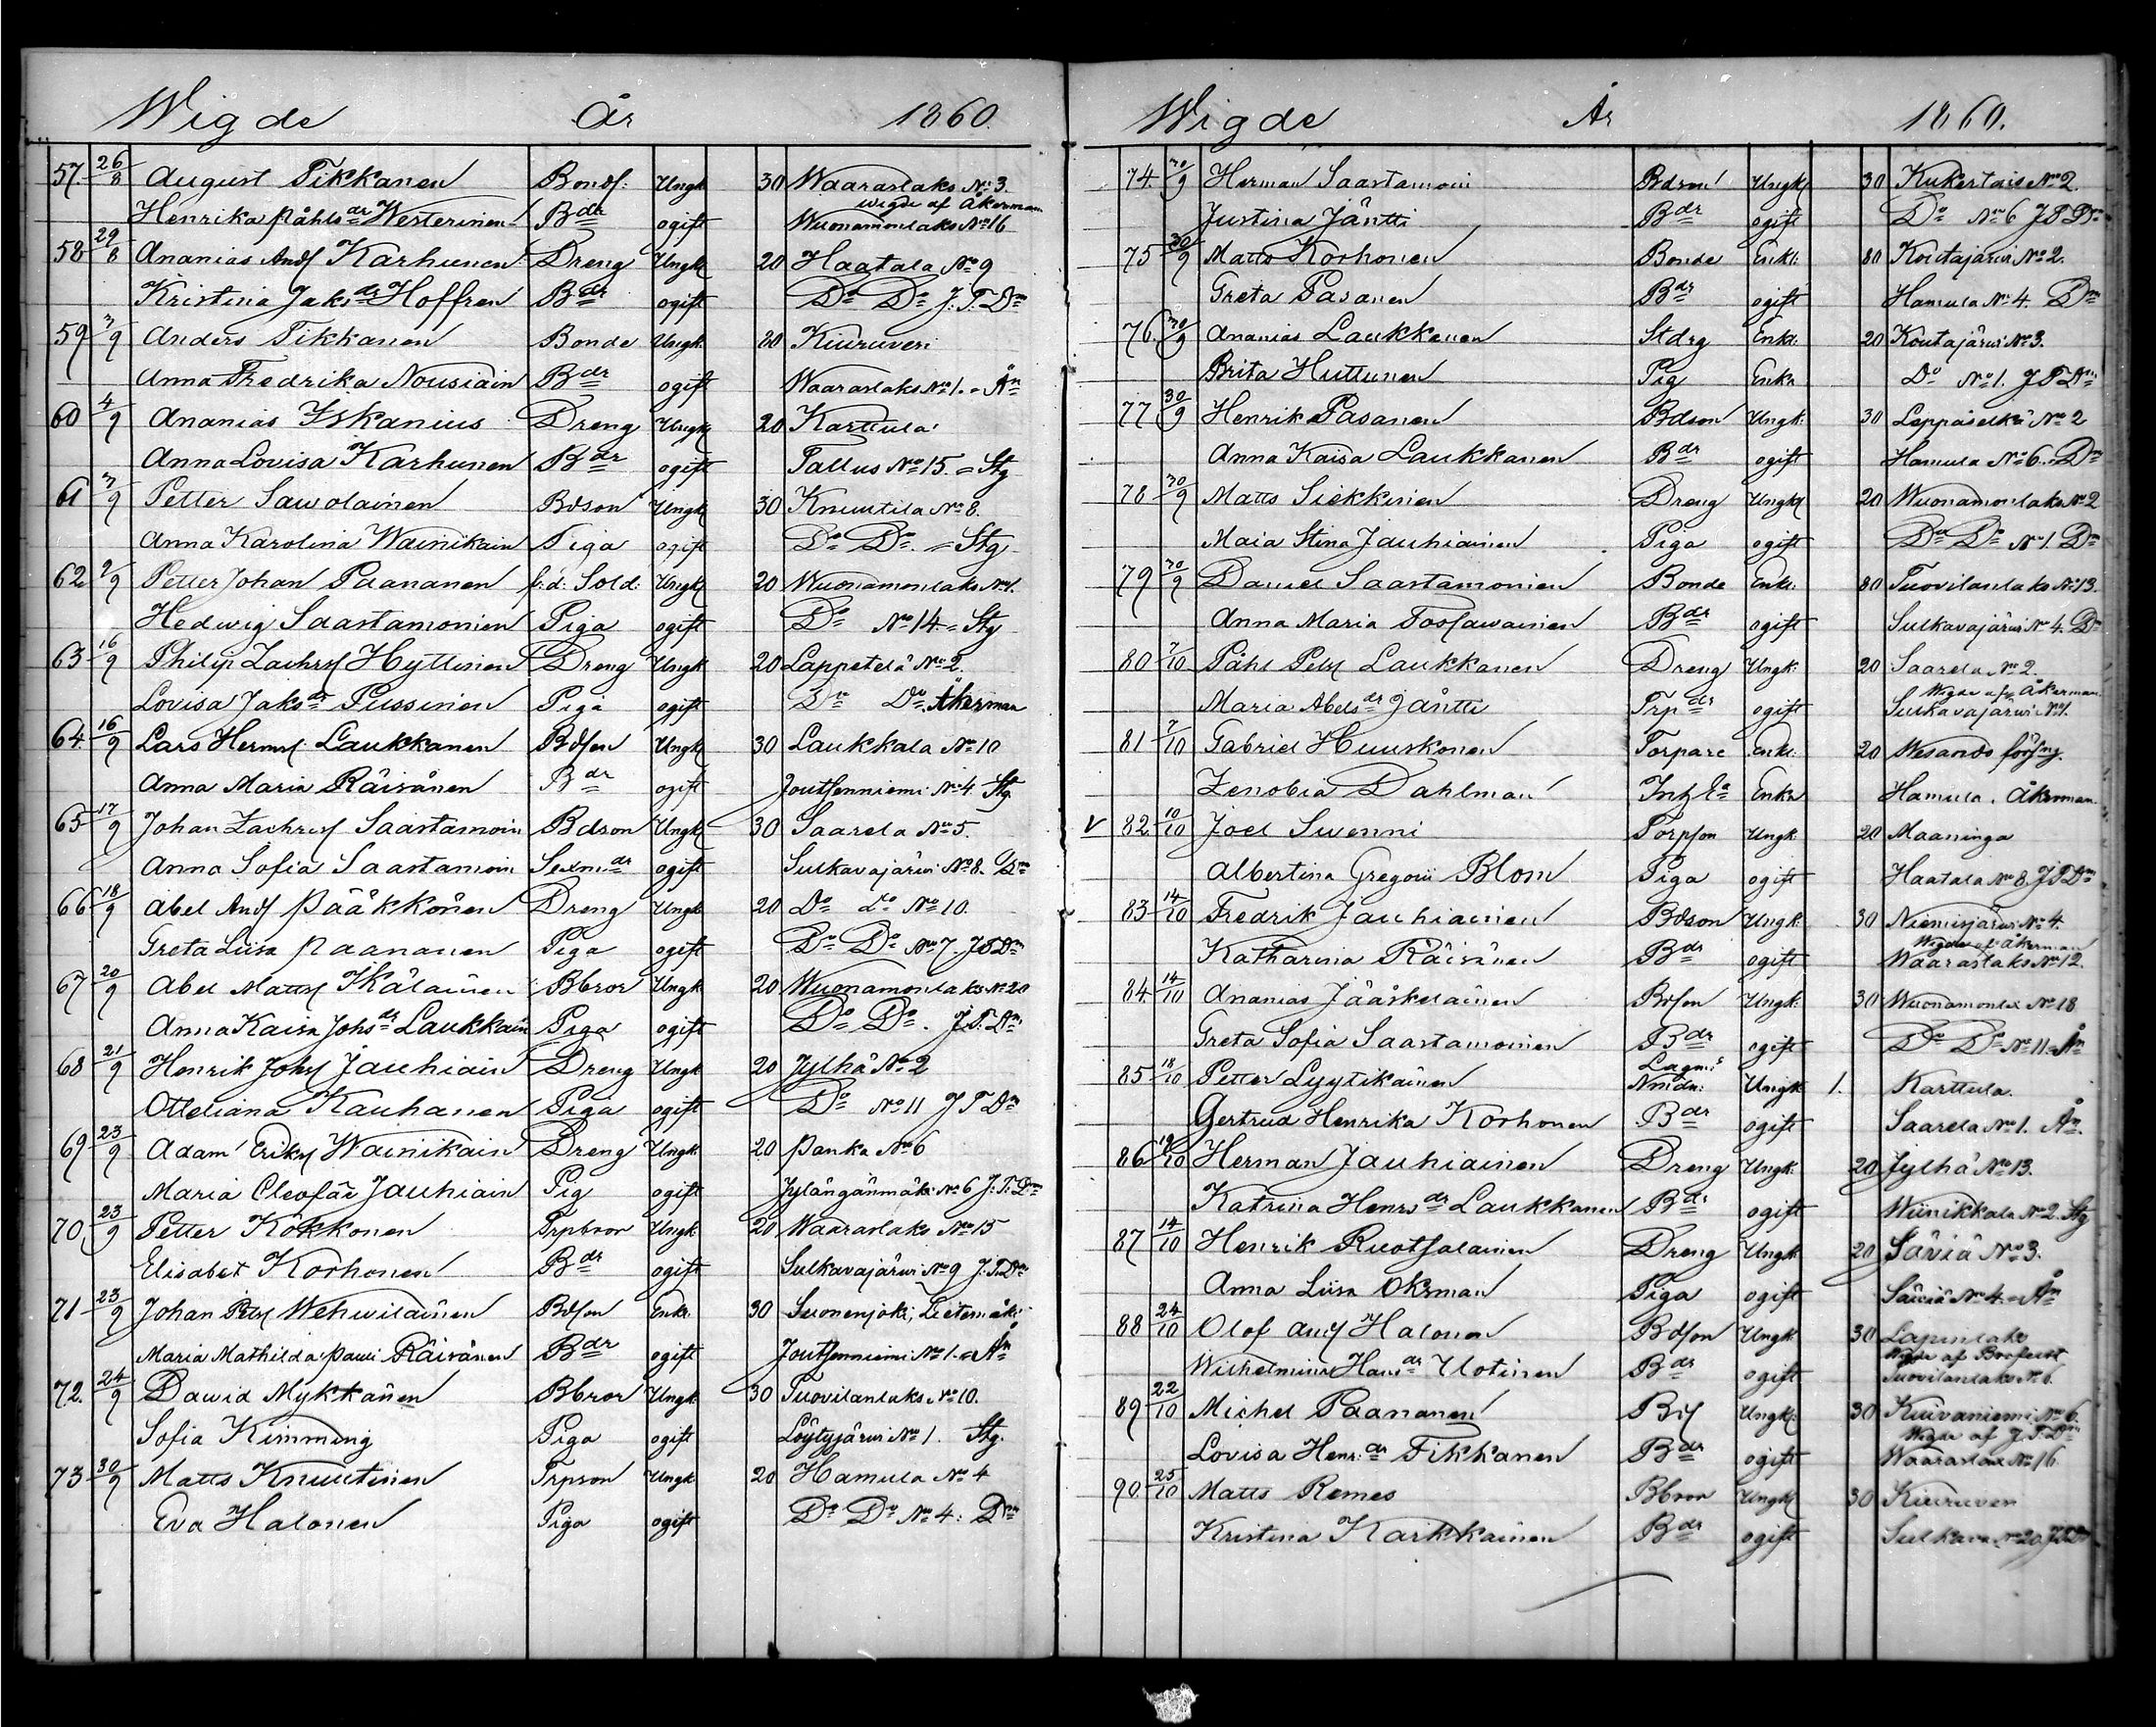 Wigde År 1860.
57. 26/8 August Tikkanen Bondſ: Ungk 30 Waaraslaks No 3.
wigde af Åkerman
Henrika Påhlsdr Westerinen Bdr ogift Wuonamonlaks No 16
58 29/8 Ananias Andſ Karhunen Dreng Ungk 20 Haatala No 9
Kristina Jaksdr Hoffren Bdr ogift Do Do J. T. Dm
59 3/9 Anders Tikkanen Bonde Ungk. 80 Kiuruvesi
Anna Fredrika Nousiain Bdr ogift Waaraslaks No 1. = Ån
60 4/9 Ananias Iskanius Dreng Ungk 20 Karttula
Anna Lovisa Karhunen Bdr ogift Tallus No 15. = Stg
61 7/9 Petter Sawolainen Bdson Ungk 30 Knuutila No 8.
Anna Karolina Wainikain Piga ogift Do Do. = Stg
62 9/9 Petter Johan Paananen f: d: Sold: Ungk 20 Wuonamonlaks No 1.
Hedwig Saastamoinen Piga ogift Do No 14 = Stg
63 16/9 Philip Zachrſ Hyttinen Dreng Ungk. 20 Lappetelä No 2.
Lovisa Jaksdr Pussinen Piga ogift Do Do. Åkerman
64 16/9 Lars Hermſ. Laukkanen Bdſon Ungk 30 Laukkala No 10
Anna Maria Räisänen Bdr ogift Joutſenniemi No 4 Stg
65 17/9 Johan Zachrſ Saastamoin Bdson Ungk 30 Saarela No 5.
Anna Sofia Saastamoin Sexmdr ogift Sulkavajärwi No 8. Dm
66 18/9 Abel Andſ Pääkkönen Dreng Ungk 20 Do do No 10.
Greta Liisa Paananen Piga ogift Do Do No 7. J T Dm
67 20/9 Abel Mattſ Ikäläinen Bbror Ungk 20 Wuonamonlaks No 20
Anna Kaisa Johsdr Laukkain Piga ogift Do Do. J. T. Dm
68 21/9 Henrik Johſ Jauhiain Dreng Ungk 20 Jylhä No 2
Otteliana Kauhanen Piga ogift Do No 11 J T Dm
69 23/9 Adam Erikſ Wainikain Dreng Ungk. 20 Panka No 6
Maria Cleofäe Jauhiain Pig ogift Jylängänmäki No 6 J. T. Dm
70. 23/9 Petter Kokkonen Trpbror Ungk 20 Waaraslaks No 15
Elisabet Korhonen Bdr ogift Sulkavajärwi No 9 J. T. Dm
71 23/9 Johan Petſ Wehwiläinen Bdſon Enkl. 30 Suonenjoki, Lietemäki
Maria Mathilda Pauli Räisänen Bdr ogift Joutſenniemi No 1. = Ån
72. 24/9 Dawid Mykkänen Bbror Ungk 30 Tuovilanlaks No 10.
Sofia Kimming Piga ogift Löytyjärwi No 1. Stg.
73 30/9 Matts Knuutinen Trpson Ungk 20 Hamula No 4
Eva Halonen Piga ogift Do Do No 4: Dm
Wigde År 1860.
74. 30/9 Herman Saastamoin Bdson Ungk 30 No 2.
Justina Jäntti Bdr ogift Do No 6 J T Dm
75 30/9 Matts Korhonen Bonde Enkl: 80 Koutajärwi No 2.
Greta Pasanen Bdr ogift Hamula No 4. Dm
76. 30/9 Ananias Laukkanen Stdrg Enkl: 20 Koutajärwi No 3.
Brita Huttunen Pig Enka Do No 1. J T Dm
77 30/9 Henrik Pasanen Bdson Ungk. 30 Leppäselkä No 2
Anna Kaisa Laukkanen Bdr ogift Hamula No 6. = Dm
78 30/9 Matts Siekkinen Dreng Ungk 20 Wuonamonlaks No 2
Maia Stina Jauhiainen Piga ogift Do Do No 1. Dm
79 30/9 Daniel Saastamoinen Bonde Enkl. 80 Tuovilanlaks No 13.
Anna Maria Tosſawainen Bdr ogift Sulkavajärwi No 4. Dm
80 7/10 Påhl Petſ Laukkanen Dreng Ungk. 20 Saarela No 2.
Wigde af Åkerman
Maria Abelsdr Jäntti Trpdr ogift Sulkavajärwi No 1.
81 7/10 Gabriel Huuskonen Torpare Enkl: 20 Wesando förſ:ng.
Zenobia Dahlman Inh Ea Enka Hamula. Åkerman
V 82 10/10 Joel Swenni Torpſon Ungk. 20 Maaninga
Albertina Gregorii Blom Piga ogift Haatala No 8. J T Dm
83 14/10 Fredrik Jauhiainen Bdson Ungk. 30 Niemisjärwi No 4.
Wigde af Åkerman
Katharina Räisänen Bdr ogift Waaraslaks No 12.
84 14/10 Ananias Jääskeläinen Bdſon Ungk. 30 Wuonamonlax No 18
Greta Sofia Saastamoinen Bdr ogift Do Do No 11 = Ån
85 18/10 Petter Lyytikäinen Lagm: Nmdn: Ungk 1. Karttula.
Gertrud Henrika Korhonen Bdr ogift Saarela No 1. Ån.
86 19/10 Herman Jauhiainen Dreng Ungk. 20 Jylhä No 13.
Katrina Henrsdr Laukkanen Bdr ogift Wiinikkala No 2. Stg
87 14/10 Henrik Ruotſalainen Dreng Ungk. 20 Säviä No 3.
Anna Liisa Oksman Piga ogift Säviä No 4. = Ån
88 24/10 Olof Andſ Halonen Bdſon Ungk. 30 Lapinlaks
Wigde af Brofeldt
Wilhelmina Hansdr Uotinen Bdr ogift Tuovilanlaks No 6.
89 22/10 Michel Paananen Bdſ Ungk. 30 Kuivaniemi No 6.
Wigde af J T Dm
Lovisa Henr:dr Tikkanen Bdr ogift Waaraslax No 16.
90. 25/10 Matts Remes Bbror Ungk 30 Kiuruvesi
Kristina Karkkainen Bdr ogift Sulkava No 20 J T Dm